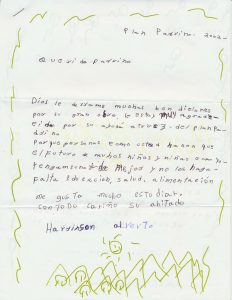 Plan Padrino. 2002-
Querido Padrino
Dios le derrame muchas bendiciones
por su gran obra le estoy muy agrade
cido por su apoyo atrvez del plan Pa-
drino
Porque personas como usted hacen que
el futuro de muchos niños y niñas como yo
tengamos mejor y no los haga
falta Educacion, salud, alimentación
me gusta mucho estudiar.
con todo cariño su ahijado
Harrinson alverto